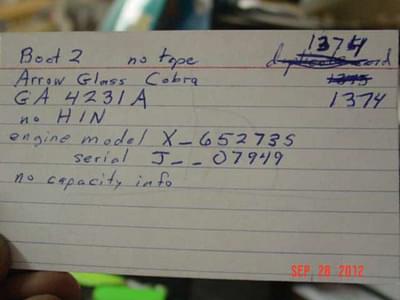 Boat 2 no tape 1374
duplicate card
Arrow Glass Cobra 1375
GA 4231A 1374
no HIN
engine model X_652735
serial J__07949
no capacity info
SEP. 28. 2012